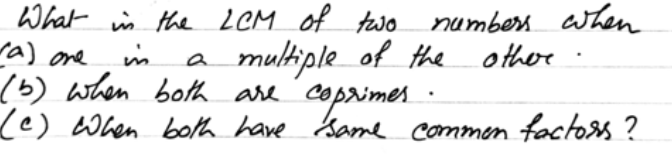 What is the LCM of two numbers when
(a) one is a multiple of the other.
(b) when both are coprimes.
(c) When both have same common factors?